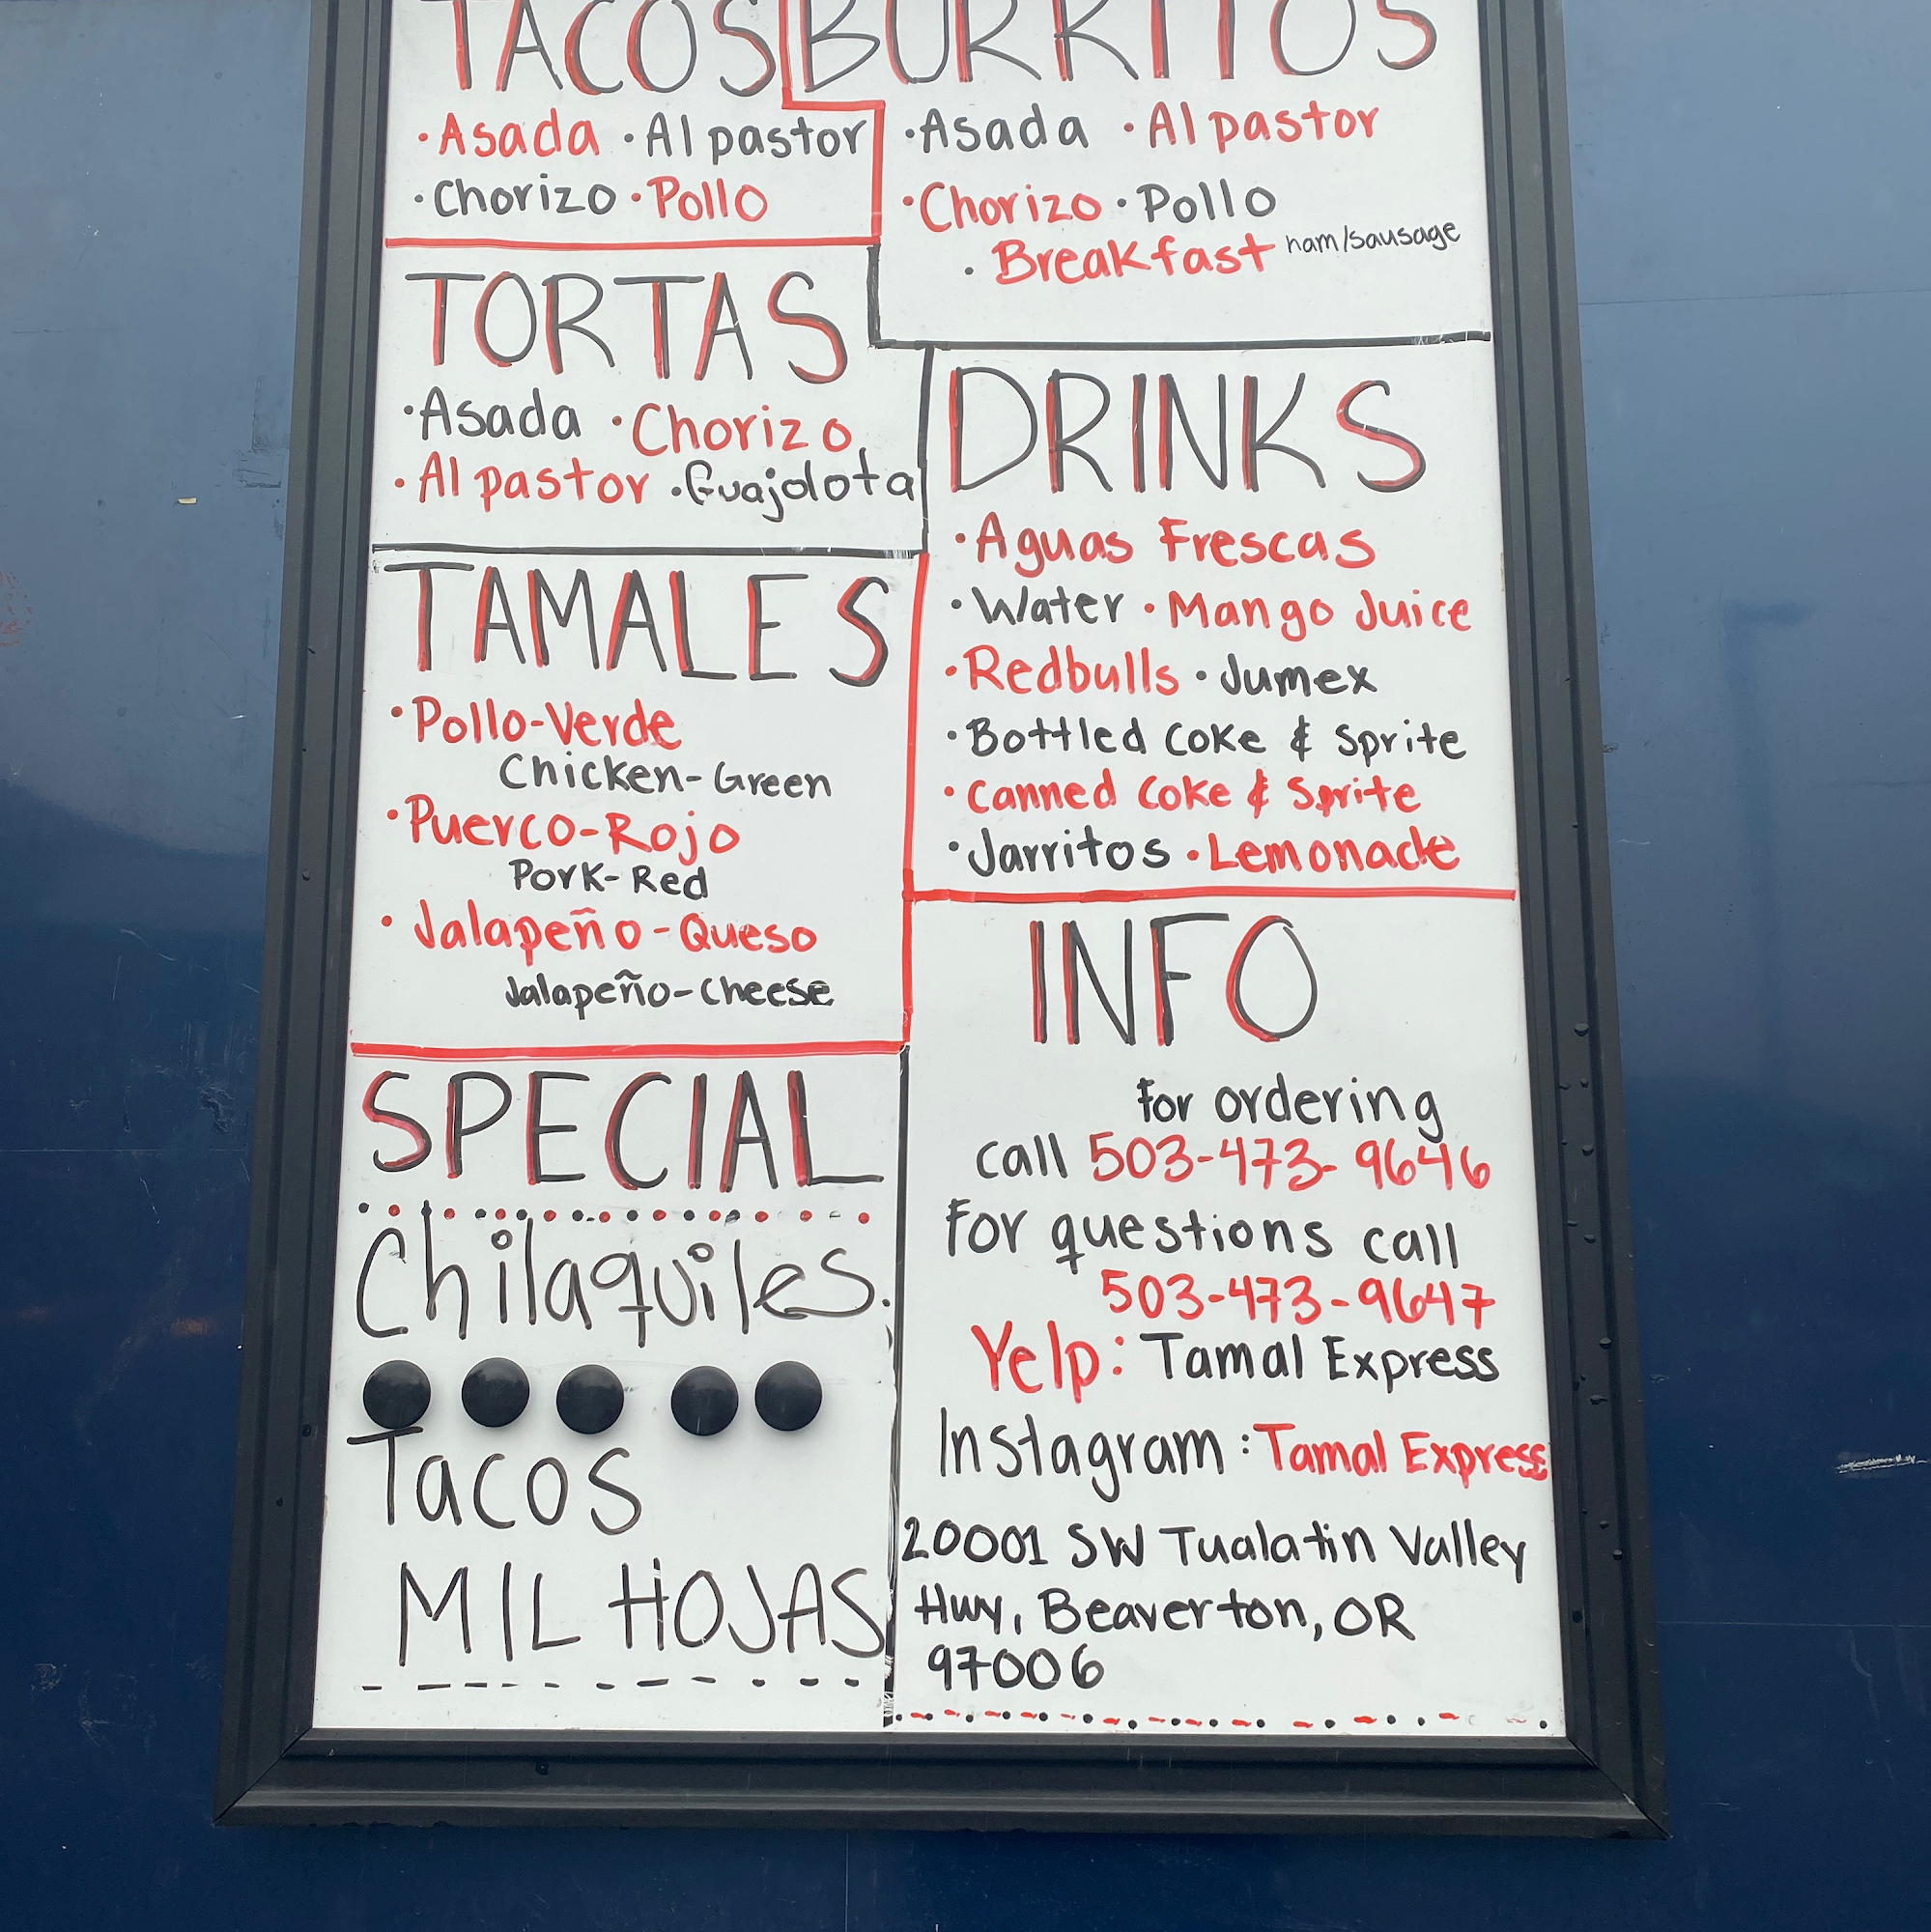 TACOS
·Asada ·Al pastor
·Chorizo ·Pollo
BURRITOS
·Asada ·Al pastor
·Chorizo ·Pollo
·Breakfast ham/sausage
TORTAS
·Asada ·Chorizo
·Al pastor ·Guajolota
DRINKS
·Aguas Frescas
·Water ·Mango Juice
·Redbulls ·Jumex
·Bottled Coke & Sprite
·Canned Coke & Sprite
·Jarritos ·Lemonade
TAMALES
·Pollo-Verde
Chicken-Green
·Puerco-Rojo
Pork-Red
·Jalapeño-Queso
Jalapeño-Cheese
SPECIAL
Chilaquiles.
Tacos
MIL HOJAS
INFO
for ordering
call 503-473-9646
For questions call
503-473-9647
Yelp: Tamal Express
Instagram: Tamal Express
20001 SW Tualatin Valley
Hwy, Beaverton, OR
97006